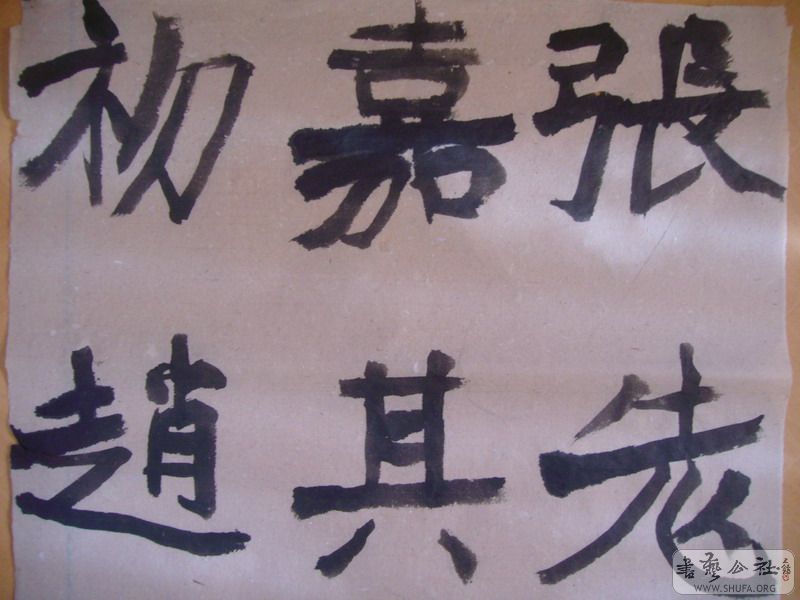 張老
嘉其
初趙
書藝公社
WWW.SHUFA.ORG